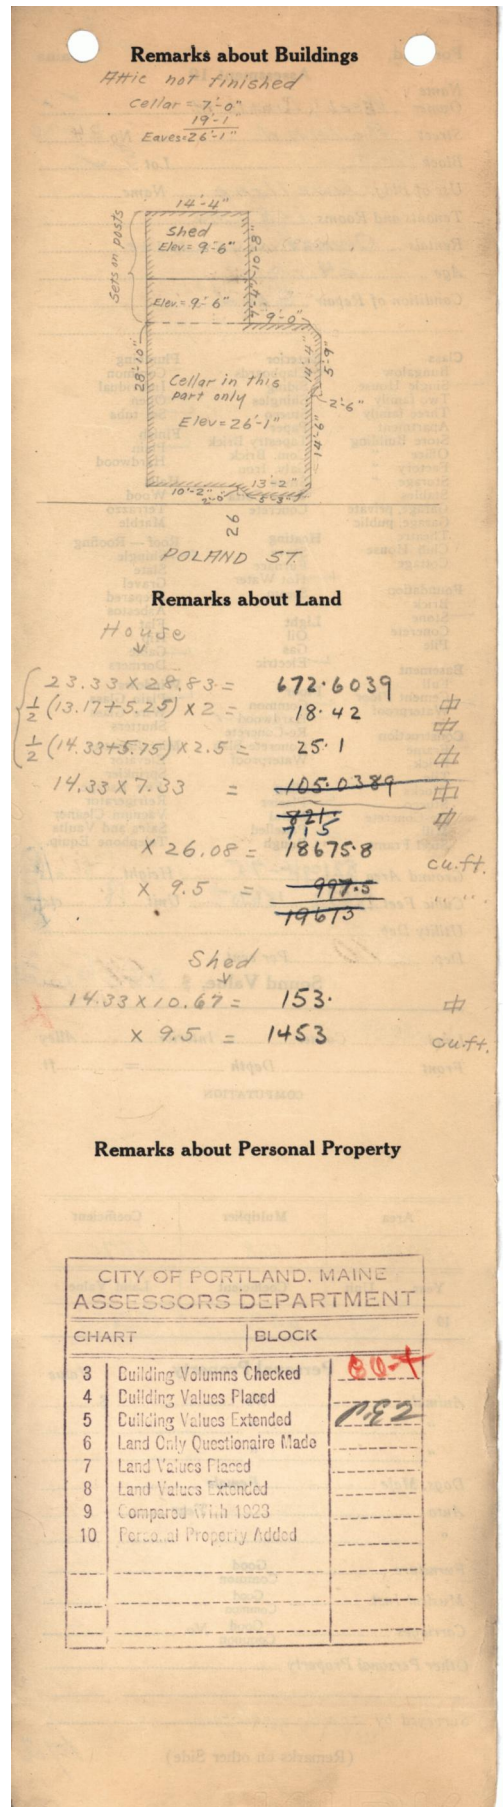 Remarks about Buildings
Attic not finished
Cellar = 7'-0"
19'-1"
Eaves=26'-1"
14'-4"
Shed
Elev.= 9'-6"
Sets on posts
10'-8"
7'-4"
Elev.= 9'-6"
9'-0"
28'-10"
14'-4"
5'-9"
Cellar in this
part only
2'-6"
Elev=26'-1"
14'-6"
13'-2"
10'-2"
2'-0"
5'-3"
26
POLAND ST.
Remarks about Land
House
23.33 X 28.83 = 672.6039
1/2 (13.17+5.25) X 2 = 18.42
1/2 (14.33+5.75) X 2.5 = 25.1
14.33 X 7.33 = 105.0389
821
715
X 26.08 = 18675.8 cu.ft.
X 9.5 = 997.5 " "
19673
Shed
14.33 X 10.67 = 153.
X 9.5 = 1453 cu.ft.
Remarks about Personal Property
CITY OF PORTLAND, MAINE
ASSESSORS DEPARTMENT
CHART BLOCK
3 Building Volumns Checked
4 Building Values Placed
5 Building Values Extended
6 Land Only Questionaire Made
7 Land Values Placed
8 Land Values Extended
9 Compared With 1923
10 Personal Property Added